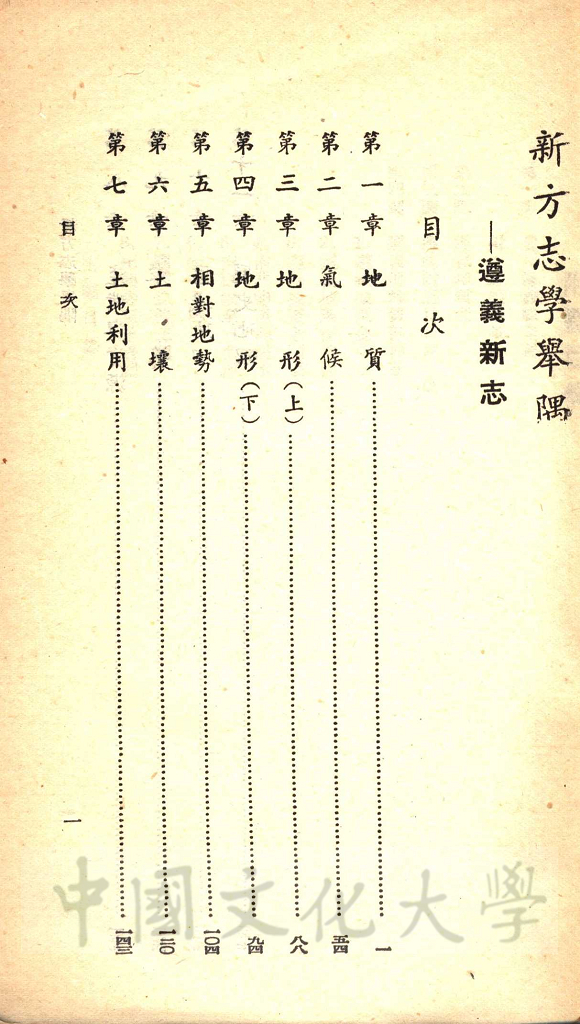 新方志學舉隅
—遵義新志
目次
第一章 地質……一
第二章 氣候……五四
第三章 地形(上)……八八
第四章 地形(下)……九四
第五章 相對地勢……一〇四
第六章 土壤……一二〇
第七章 土地利用……一四三
目次
一
中國文化大學